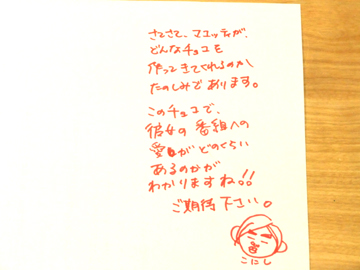 さてさて、マユッティが、
どんなチョコを
作ってきてくれるのか
たのしみであります。
このチョコで、
彼女の番組への
愛がどのくらい
あるのかが
わかりますね!!
ご期待下さい。
こにし